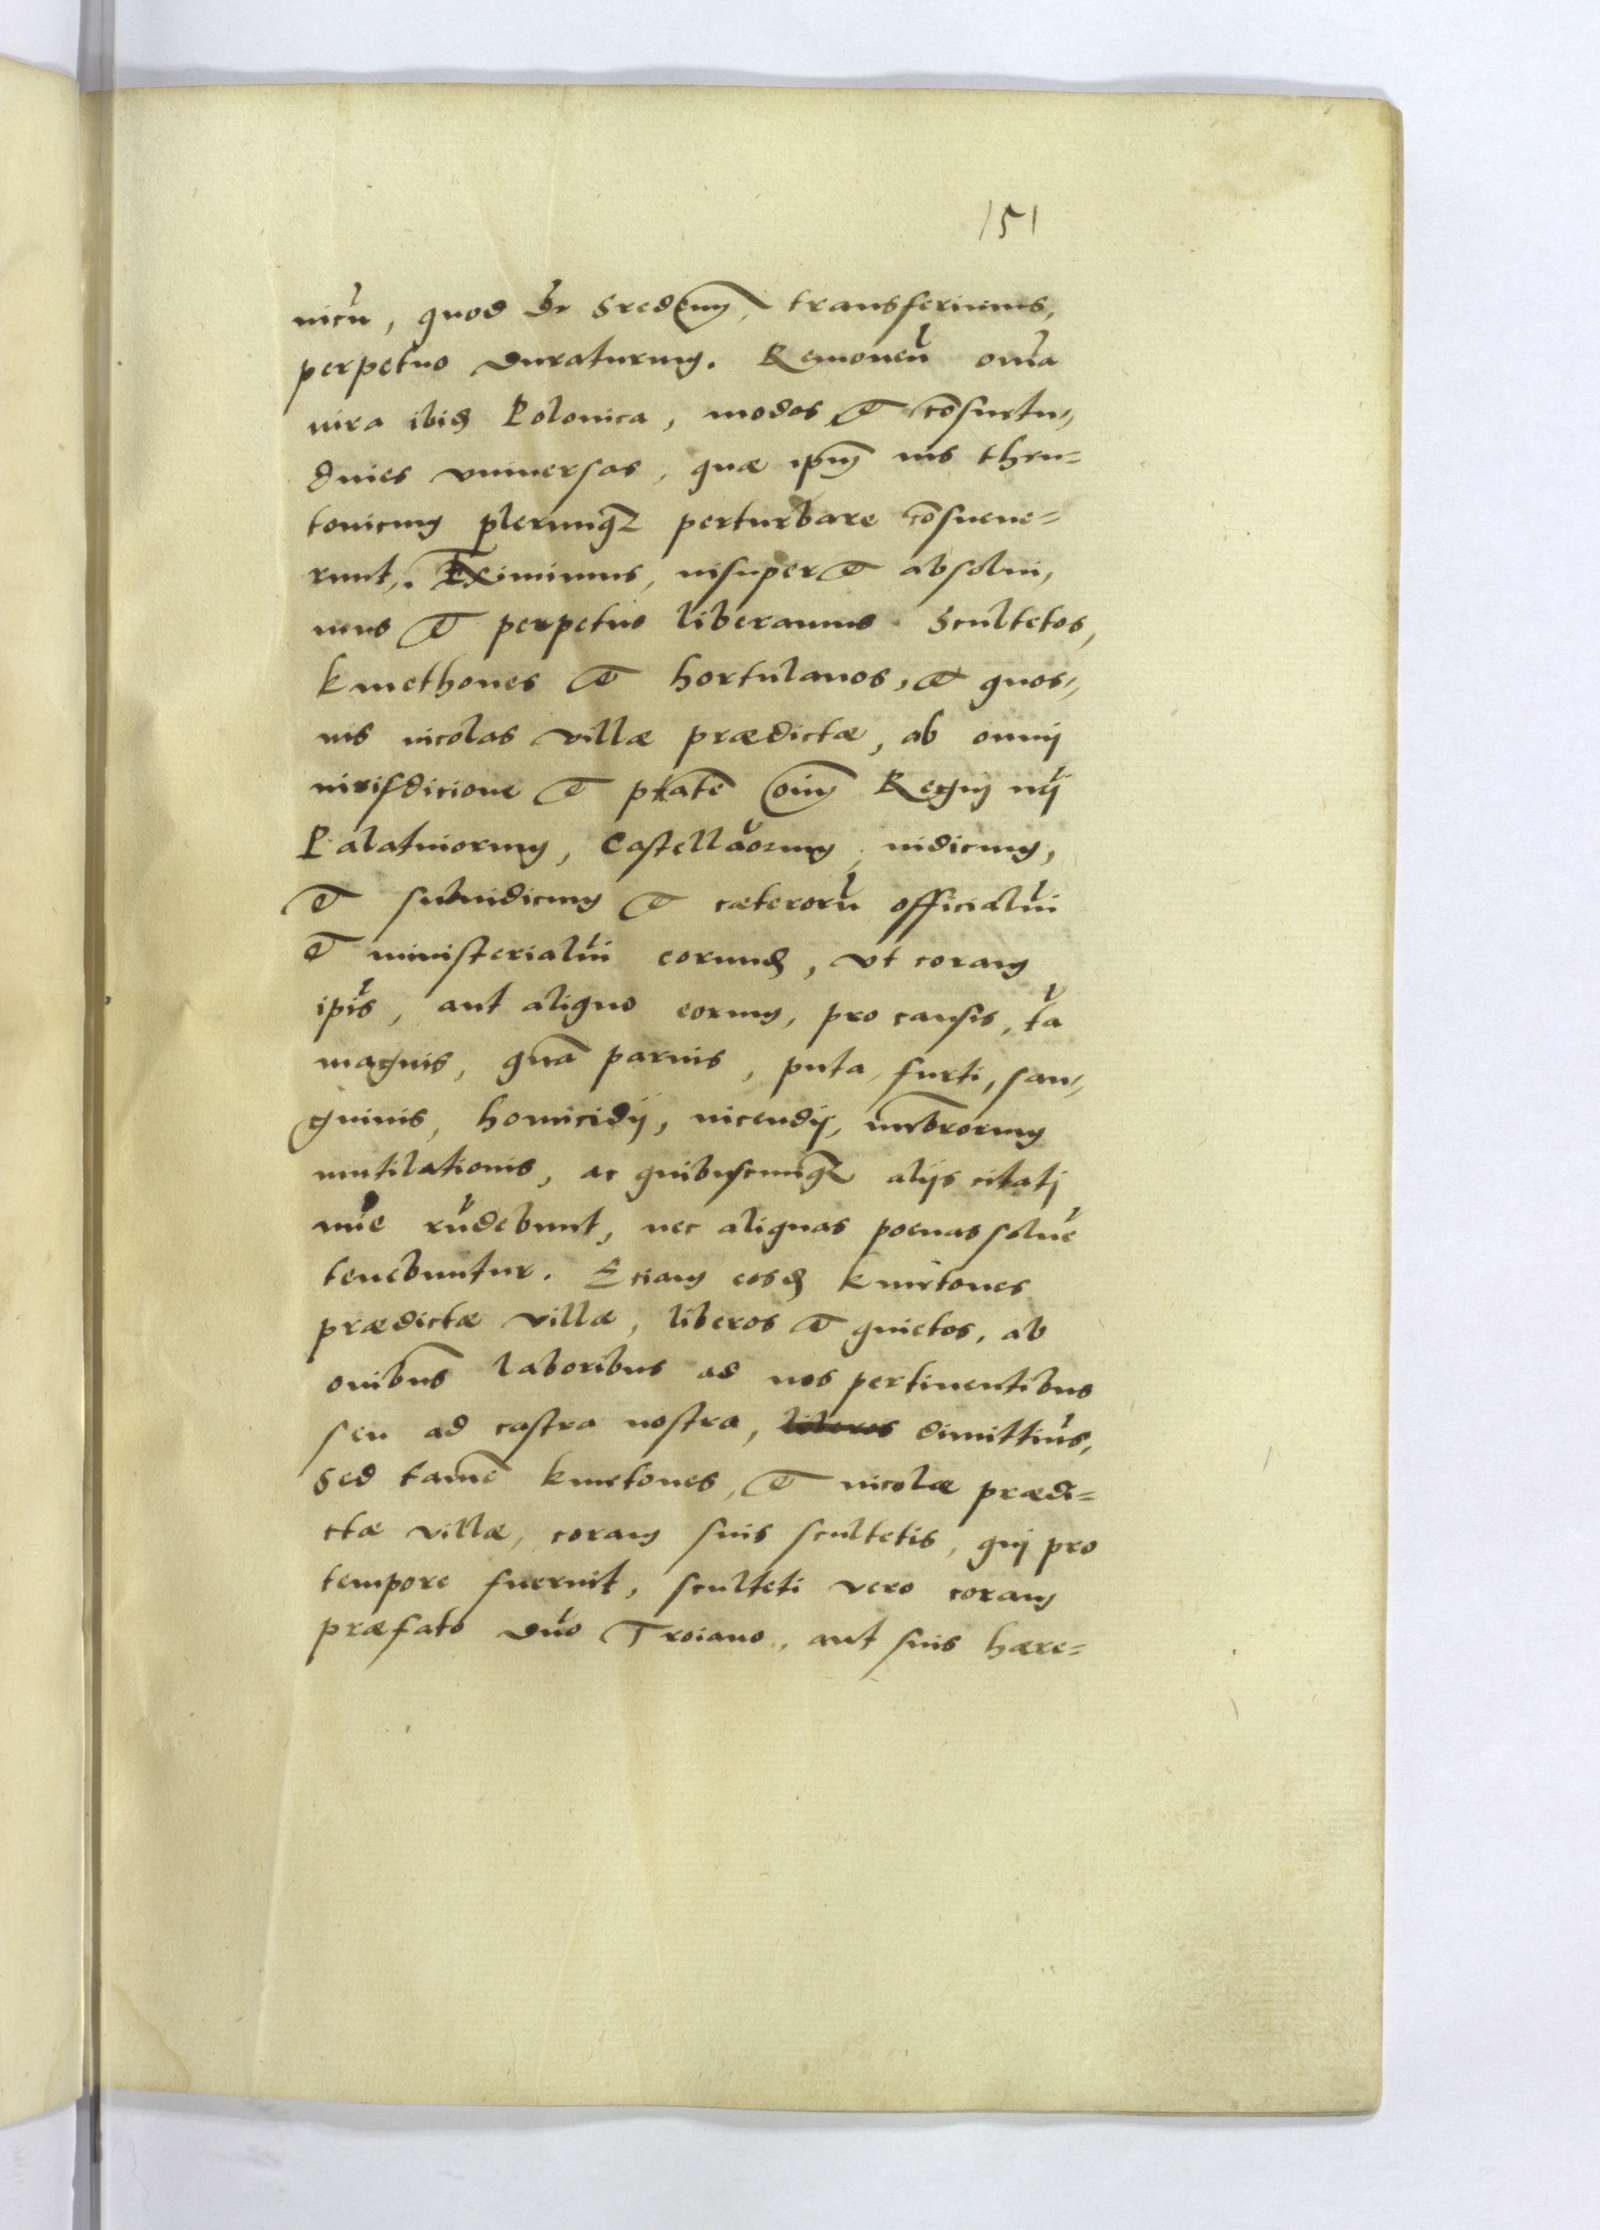 151
nicũ, quod dr Sredenſ, transferimus,
perpetuo duraturum. Remouen̄ om̄a
iura ibid Polonica, modos et cōsuetu,,
dines vniuersas, quae ipm̄ ius theu=
tonicum plerunq3 perturbare cōsueue=
runt. Eximimus, insuper et absolui,,
mus et perpetuo liberamus Scultetos,
kmethones et hortulanos, et quos,,
uis incolas villae praedictae, ab omnj
iurisdicione et ptatē om̄ Regnj nr̄j
Palatinorum, Castellāorum, iudicum,
et subiudicum et caeterorū officialiū
et ministerialiū eorund, vt coram
ipīs, aut aliquo eorum, pro causis, tā
magnis, quā paruis, puta, furti, san,,
guinis, homicidij, incendij, mēbrorum
mutilationis, ac quibuscunq3 alijs citatj
mīe rn̄debunt, nec aliquas poenas soluē
tenebuntur. Etiam eosd kmetones
praedictae villae, liberos et quietos, ab
om̄ibus laboribus ad nos pertinentibus
seu ad castra nostra, liberos dimittim̄s,
Sed tamē kmetones, et incolae praedi=
ctae villae, coram suis scultetis, quj pro
tempore fuerint, sculteti vero coram
praefato dn̄o Troiano, aut suis haere=